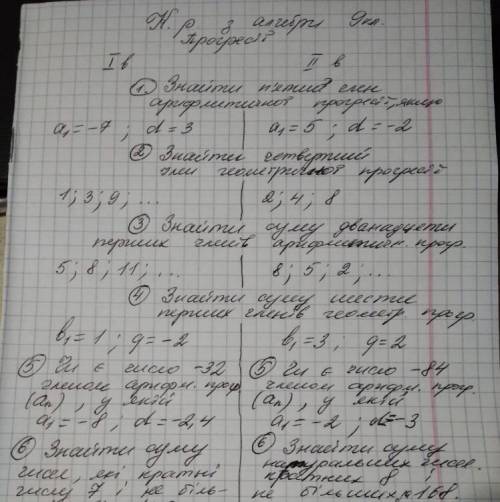 К. р з алгебри 9кл.
Прогресії
І в ІІ в
① Знайти п'ятий член
арифметичної прогресії, якщо
a₁ = -7 ; d = 3 a₁ = 5 ; d = -2
② Знайти четвертий
член геометричної прогресії
1 ; 3 ; 9 ; ... 2 ; 4 ; 8
③ Знайти суму дванадцяти
перших членів арифметичн. прогр.
5 ; 8 ; 11 ; ... 8 ; 5 ; 2 ; ...
④ Знайти суму шести
перших членів геометр. прогр
b₁ = 1 ; q = -2 b₁ = 3 , q = 2
⑤ Чи є число -32 ⑤ Чи є число -84
членом арифм. прогр членом арифм. прогр.
(aₙ) , у якій (aₙ) , у якій
a₁ = -8 ; d = -2,4 a₁ = -2 ; d = -3
⑥ Знайти суму ⑥ Знайти суму
чисел, які кратні натуральних чисел.
числу 7 і не біль- кратних 8 і
не більших 168